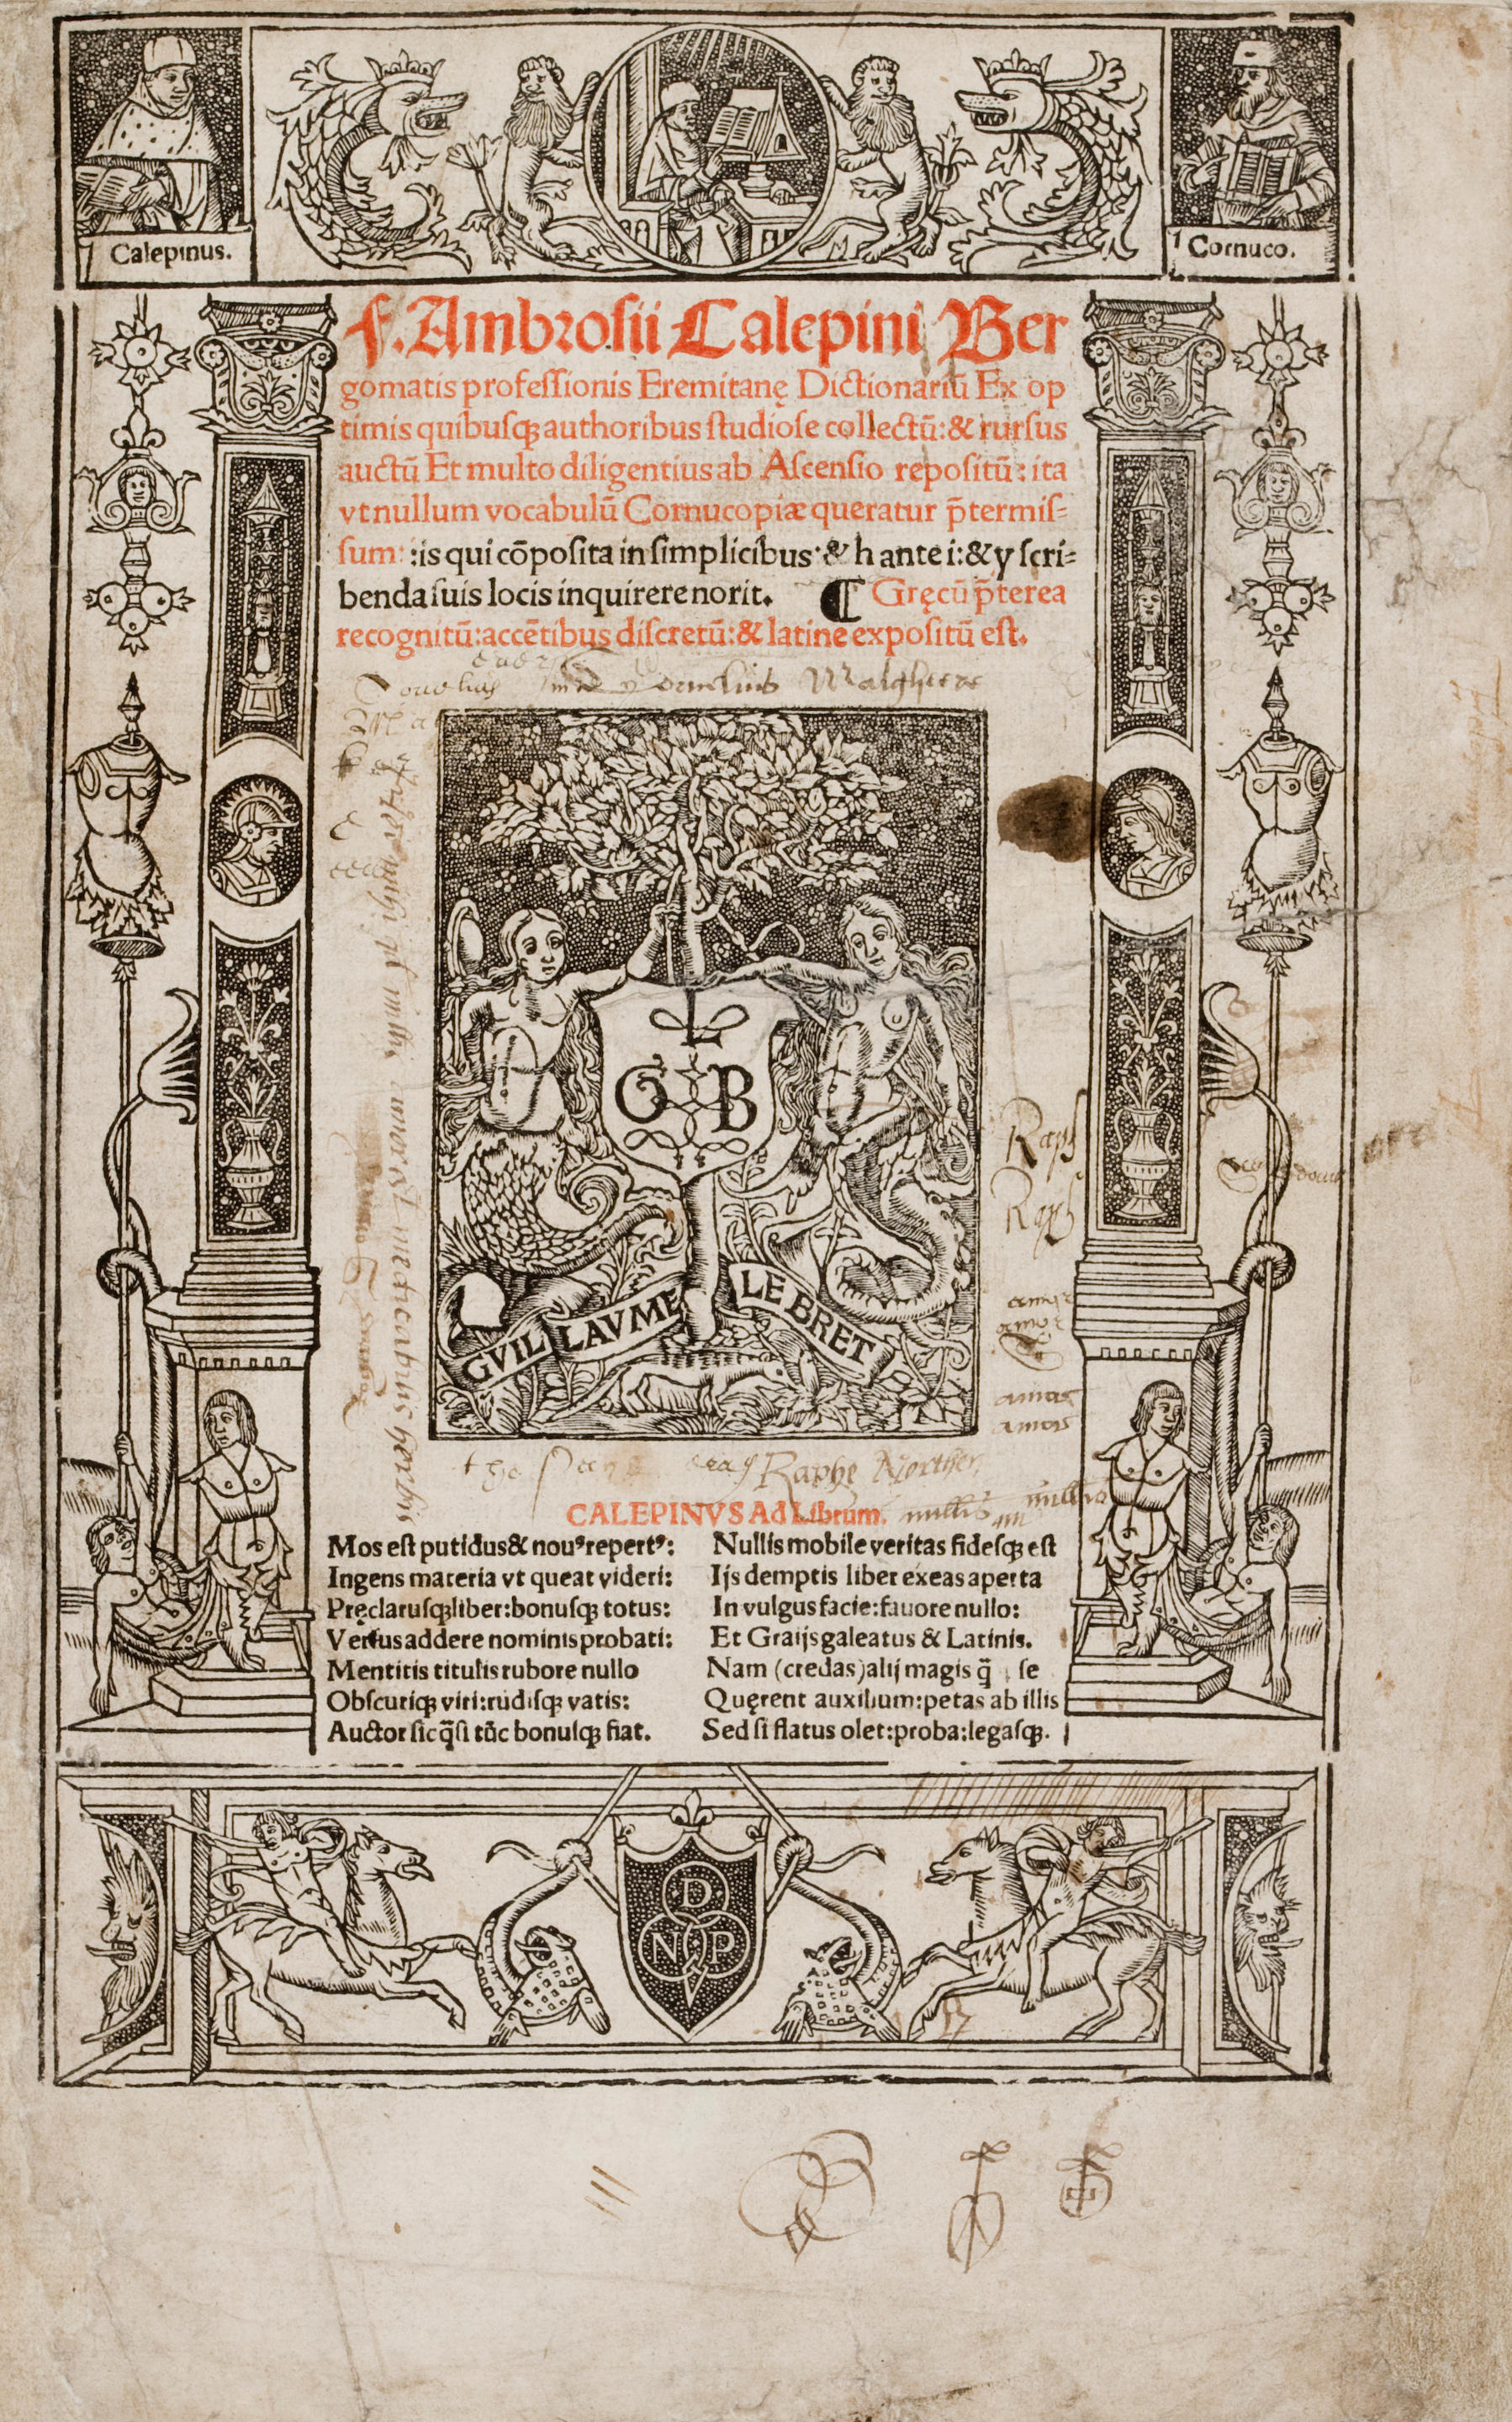 Calepinus.
Cornuco.
f. Ambrosii Calepini Ber
gomatis professionis Eremitanę Dictionariū Ex op
timis quibusqꝫ authoribus studiose collectū: & rursus
auctū Et multo diligentius ab Ascensio repositū: ita
vt nullum vocabulū Cornucopiæ queratur p̄termis-
sum: :is qui cōposita in simplicibus·& h ante i:&y scri-
benda suis locis inquirere norit. ¶ Gręcū p̄terea
recognitū:accētibus discretū:& latine expositū est.
Cornelius Walghere
L
G B
Raph
Raph
GVILLAVME LE BRET
amor
amas
amor
Raphe
CALEPINVS Ad Librum.
nullis nullis
Mos est putidus& nouꝰ repertꝰ:
Ingens materia vt queat videri:
Pręclarusqꝫ liber:bonusqꝫ totus:
Versus addere nominis probati:
Mentitis titulis rubore nullo
Obscuriqꝫ viri:rudisqꝫ vatis:
Auctor sic q̄si tūc bonusqꝫ fiat.
Nullis mobile veritas fidesqꝫ est
Ijs demptis liber exeas aperta
In vulgus facie:fauore nullo:
Et Graijs galeatus & Latinis.
Nam (credas)alij magis q̄ se
Quęrent auxilium:petas ab illis
Sed si flatus olet:proba:legasqꝫ.
D
N P